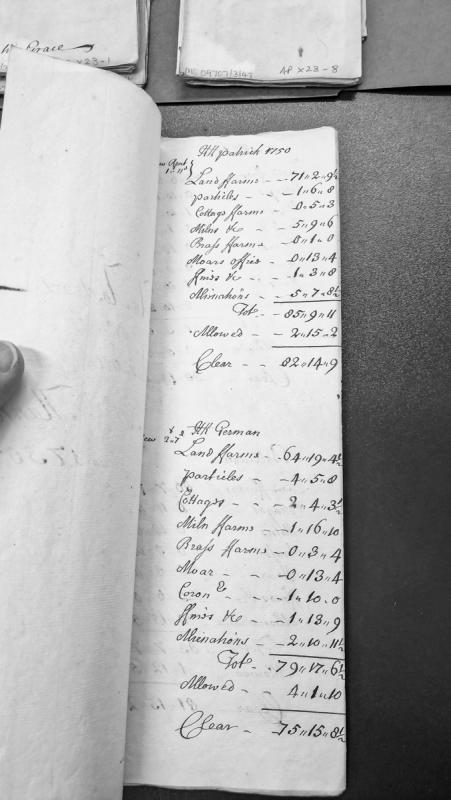 Grace
x23-1
MS 09707/3/47
AP x23-8
KK patrick 1750
Land ffarms - - 71 ,, 2 ,, 9½
particles - - 1 ,, 6 ,, 8
Cottage ffarms - 0 ,, 5 ,, 3
Milns &c - - 5 ,, 9 ,, 6
Brass ffarms - 0 ,, 1 ,, 0
Moars office - 0 ,, 13 ,, 4
ffines &c - - 1 ,, 3 ,, 8
Alienations - 5 ,, 7 ,, 8½
Tot - 85 ,, 9 ,, 11
Allowed - 2 ,, 15 ,, 2
Clear - - 82 ,, 14 ,, 9
KK German
Land ffarms - 64 ,, 19 ,, 4½
particles - 4 ,, 5 ,, 8
Cottages - - 2 ,, 4 ,, 3½
Miln ffarms - 1 ,, 16 ,, 10
Brass ffarms - 0 ,, 3 ,, 4
Moar - - 0 ,, 13 ,, 4
Coron - - 1 ,, 10 ,, 0
ffines &c - 1 ,, 13 ,, 9
Alienations - 2 ,, 10 ,, 11½
Tot - 79 ,, 17 ,, 6½
Allowed - 4 ,, 1 ,, 10
Clear - 75 ,, 15 ,, 8½